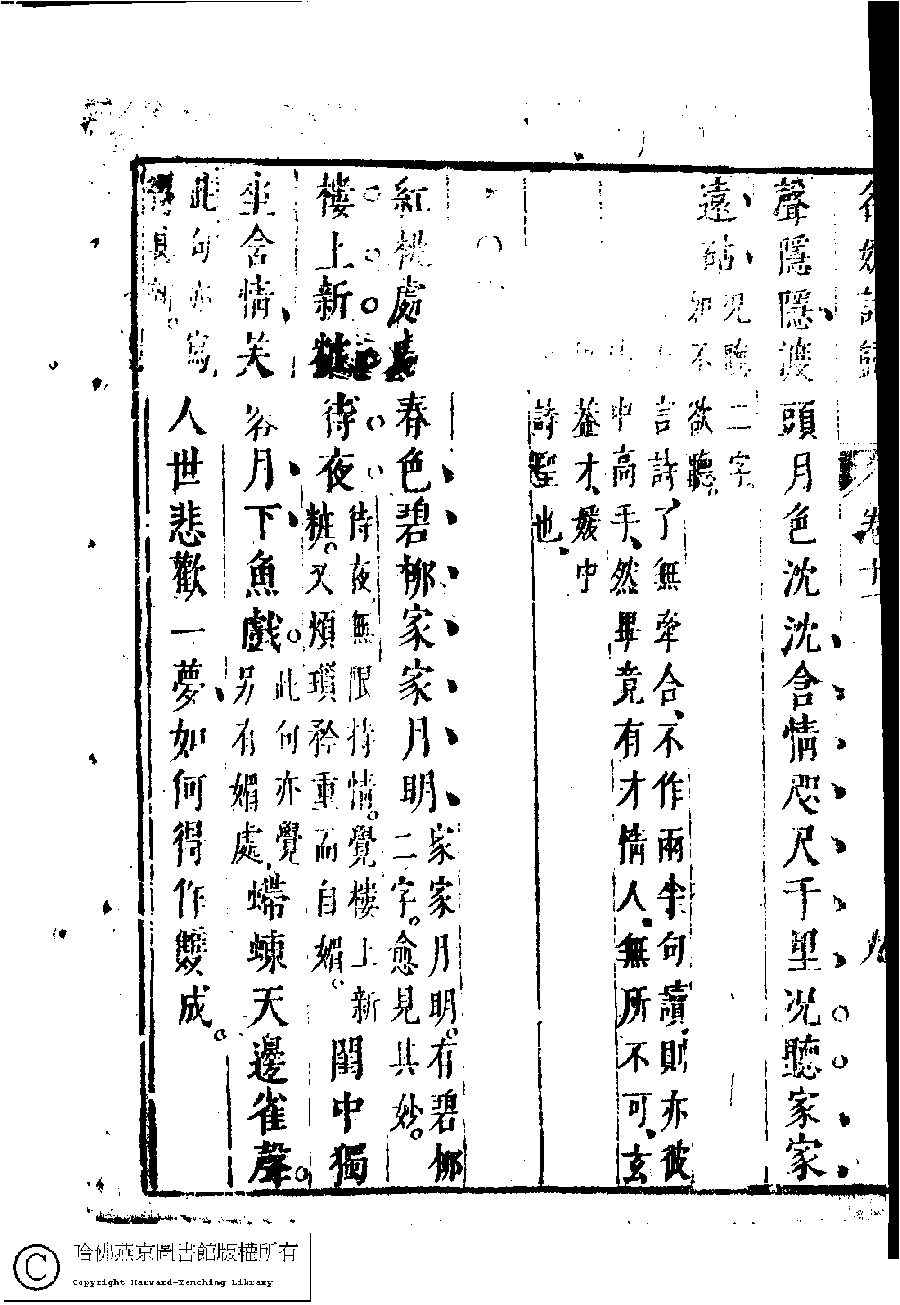 名媛詩歸 卷十一 九
聲隱隱渡頭月色沈沈含情咫尺千里况聽家家
遠砧况聽二字
如不欲聽。
言詩了無牽合、不作兩李句讀、則亦彼
中高手、然畢竟有才情人、無所不可、玄
蓋才媛中
詩聖也、
紅桃處處春色碧柳家家月明家家月明。有碧柳
二字。愈見其妙。
樓上新粧待夜待夜無限持情。覺樓上新
粧。又煩瑣矜重而自媚。閨中獨
坐含情芙蓉月下魚戲。此句亦覺
另有媚處、螮蝀天邊雀聲。
此句亦寫
人世悲歡一夢如何得作雙成。
哈佛燕京圖書館版權所有
Copyright Harvard-Yenching Library